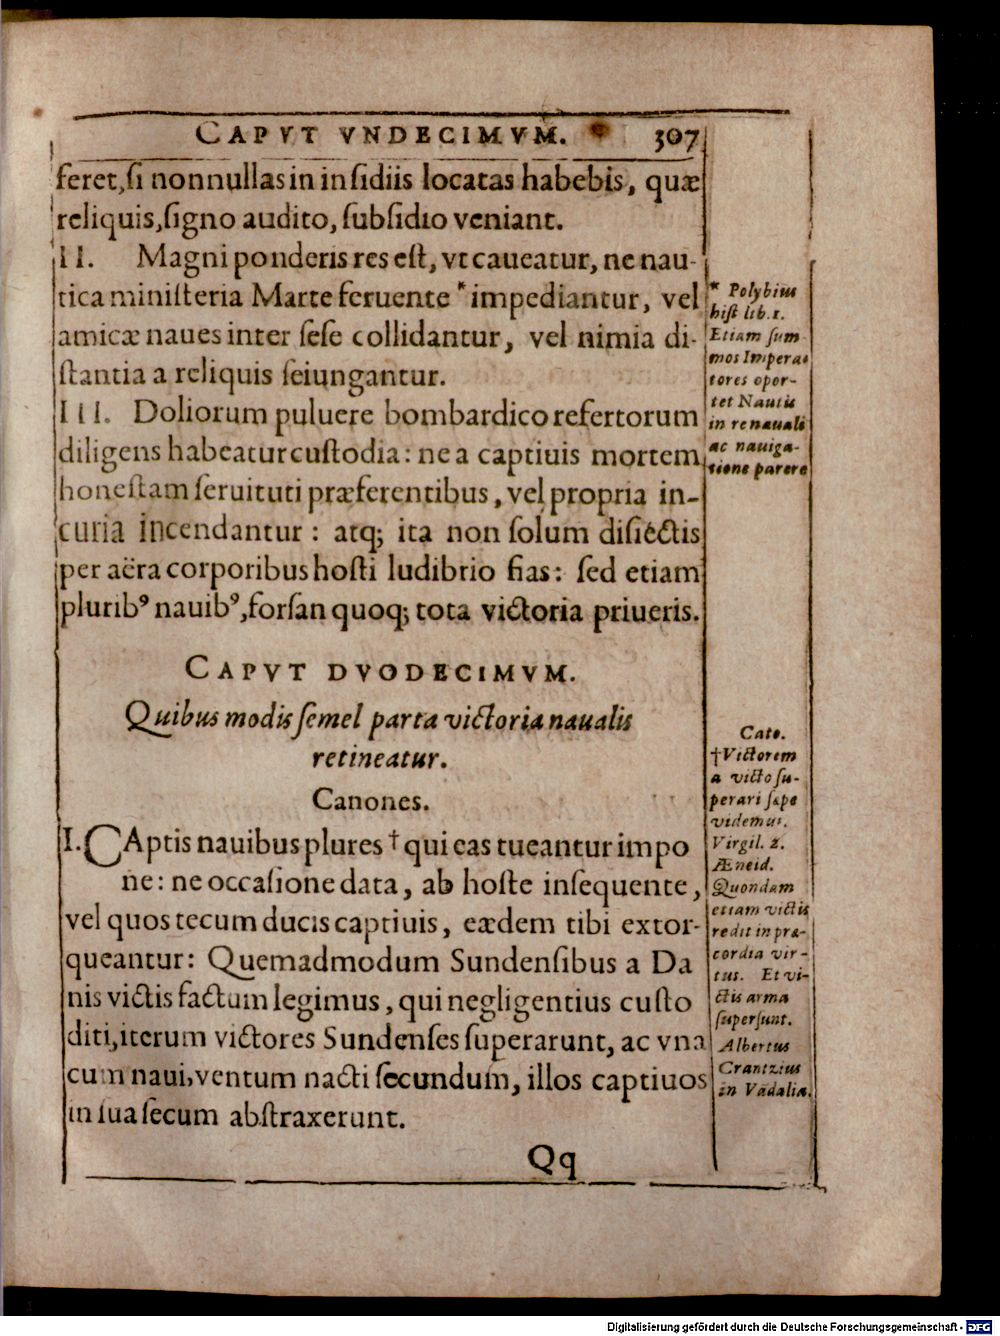 CAPVT VNDECIMVM. 307
feret, ſi nonnullas in inſidiis locatas habebis, quæ
reliquis, ſigno audito, ſubſidio veniant.
II. Magni ponderis res eſt, vt caueatur, ne nau-
tica miniſteria Marte feruente * impediantur, vel
amicæ naues inter ſeſe collidantur, vel nimia di-
ſtantia a reliquis ſeiungantur.
III. Doliorum puluere bombardico refertorum
diligens habeatur cuſtodia: ne a captiuis mortem
honeſtam ſeruituti præferentibus, vel propria in-
curia incendantur: atq; ita non ſolum diſiectis
per aëra corporibus hoſti ludibrio fias: ſed etiam
pluribꝰ nauibꝰ, forſan quoq; tota victoria priueris.
* Polybius
hiſt lib. 1.
Etiam ſum
mos Impera-
tores opor-
tet Nautis
in re nauali
ac nauiga-
tione parere
CAPVT DVODECIMVM.
Quibus modis ſemel parta victoria naualis
retineatur.
Canones.
I. CAptis nauibus plures † qui eas tueantur impo
ne: ne occaſione data, ab hoſte inſequente,
vel quos tecum ducis captiuis, eædem tibi extor-
queantur: Quemadmodum Sundenſibus a Da
nis victis factum legimus, qui negligentius cuſto
diti, iterum victores Sundenſes ſuperarunt, ac vna
cum naui, ventum nacti ſecundum, illos captiuos
in ſua ſecum abſtraxerunt.
Cato.
†Victorem
a victo ſu-
perari ſæpe
videmus.
Virgil. 2.
Æneid.
Quondam
etiam victis
redit in præ-
cordia vir-
tus. Et vi-
ctis arma
ſuperſunt.
Albertus
Crantzius
in Vadalia.
Qq
Digitalisierung gefördert durch die Deutsche Forschungsgemeinschaft - DFG